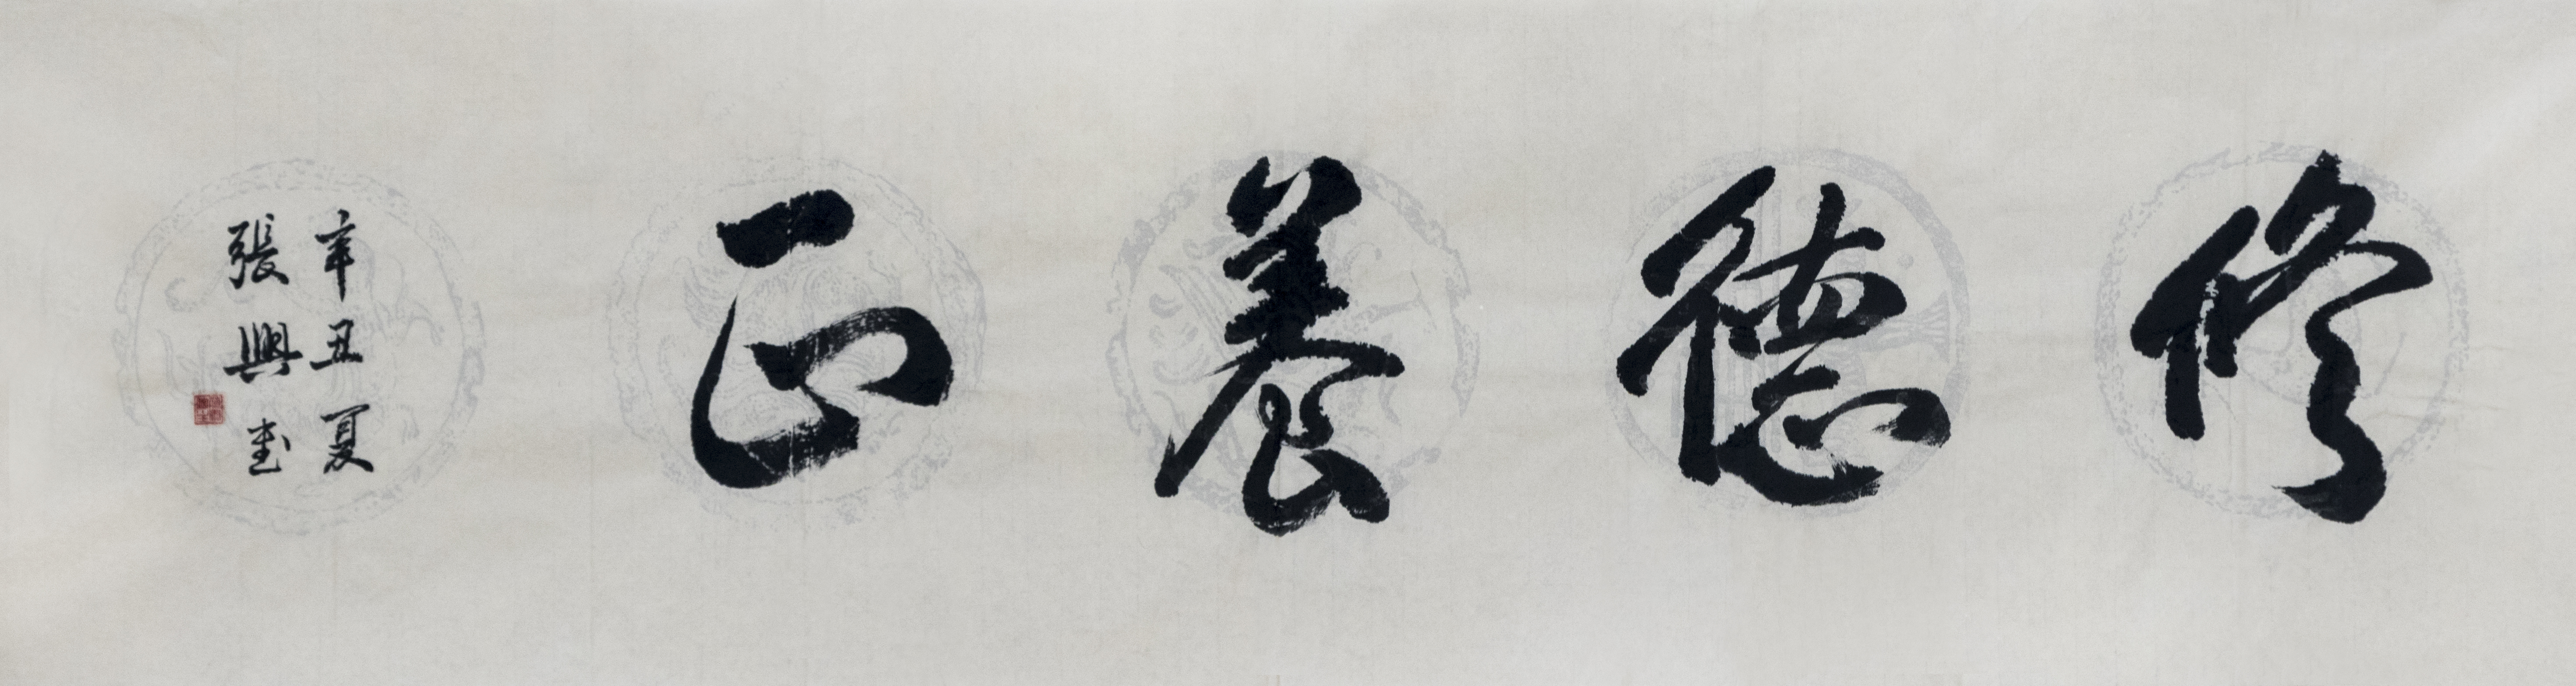 修德養正
辛丑夏
張興書